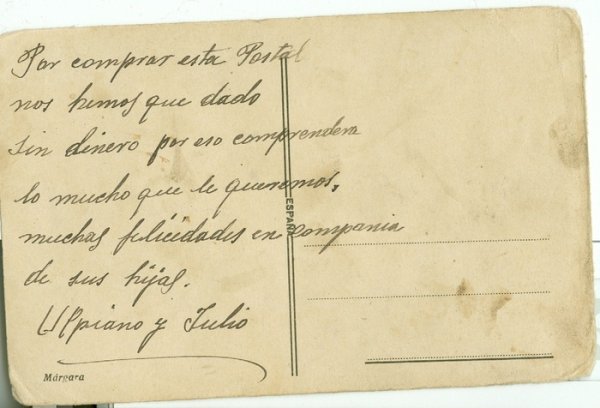 Por comprar esta Postal
nos hemos que dado
sin dinero por eso comprendera
lo mucho que le queremos,
muchas felicidades en Compania
de sus hijas.
Ulpiano y Julio
ESPAÑA
Márgara